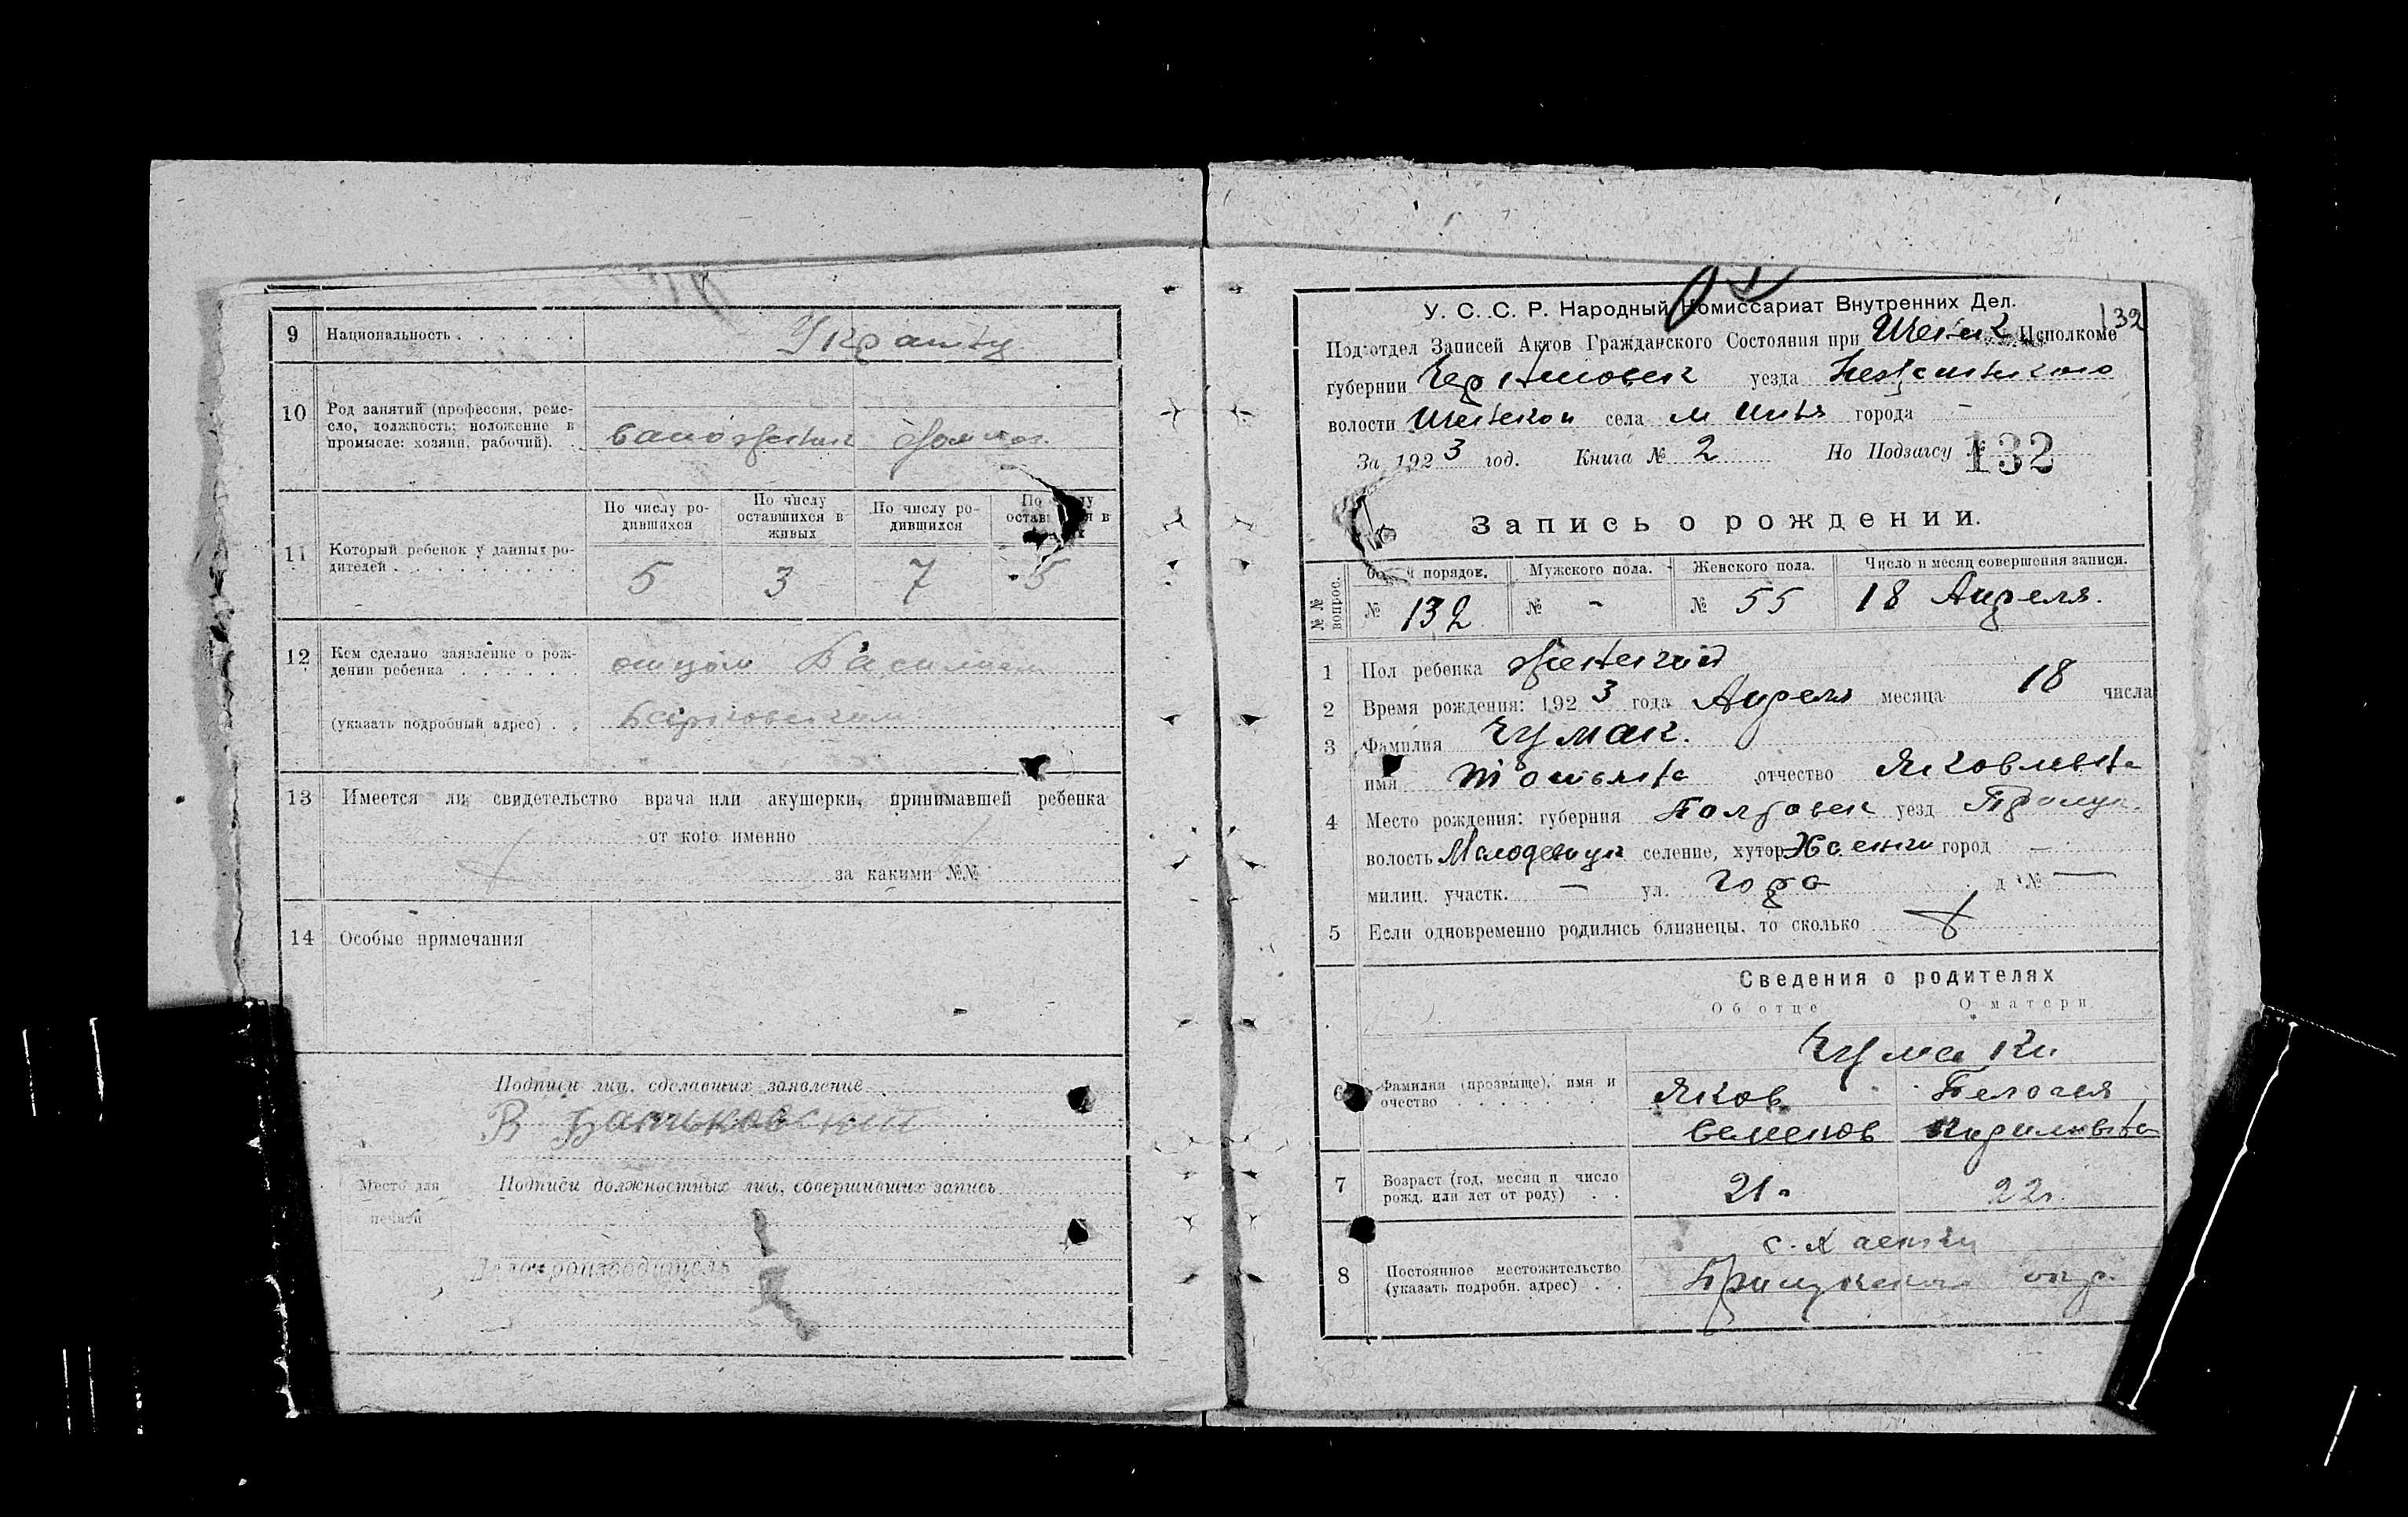 9 Национальность Украинц
10 Род занятий (профессия, реме-
сло, должность; положение в
промысле: хозяин, рабочий).
домхоз.
11 Который ребенок у данных ро-
дителей
По числу ро-
дившихся
По числу
оставшихся в
живых
По числу ро-
дившихся
По
в
5 3 7 5
12 Кем сделано заявление о рож-
дении ребенка отцом Василием
(указать подробный адрес)
13 Имеется ли свидетельство врача или акушерки, принимавшей ребенка
от кого именно
за какими №№
14 Особые примечания
Подписи лиц, сделавших заявление
В Батьковский
Место для
печати
Подписи должностных лиц, совершивших запись
Делопроизводитель
У. С. С. Р. Народный Комиссариат Внутренних Дел.
132
Подотдел Записей Актов Гражданского Состояния при Исполкоме
губернии уезда
волости села м города –
За 1923 год. Книга № 2 По Подзагсу № 132
Запись о рождении.
№№ вопрос.
порядок. Мужского пола. Женского пола. Число и месяц совершения записи.
№ 132 № - № 55 18 Апреля.
1 Пол ребенка Женский
2 Время рождения: 1923 года Апреля месяца 18 числа
3 Фамилия Чумак.
имя Тотьяна отчество Яковлевна
4 Место рождения: губерния уезд
волость селение, хутор город —
милиц. участк. — ул. Гора д № —
5 Если одновременно родились близнецы, то сколько
Сведения о родителях
Об отце О матери
Чумаки
6 Фамилия (прозвыще), имя и
очество
Яков Пелогея
Семенов Кириловна
7 Возраст (год, месяц и число
рожд. или лет от роду)
21г 22г.
8 Постоянное местожительство
(указать подробн. адрес)
с. Хаенки
окр.